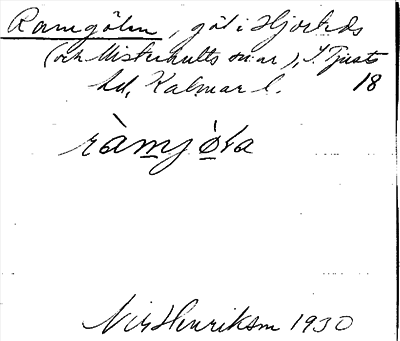 Ramgölen, göl i Hjorteds
(och Misterhults snar), S Tjusts
hd, Kalmar l. 18
ràmjöla
Nils Henriksson 1930